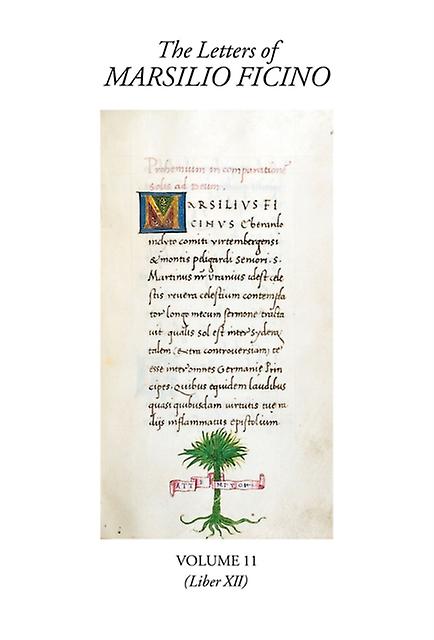 The Letters of
MARSILIO FICINO
Prohemium in comparationē
solis ad Deum.
MARSILIVS FI
CINVS Eberardo
inclyto comiti virtembergensi
& montis peligardi seniori. s.
Martinus nr̄ vranius idest cele
stis revera celestium contempla
tor longo mecum sermone tracta
vit qualis sol est inter sydera
talem (extra controversiam) te
esse inter omnes Germanie Prin
cipes. Quibus equidem laudibus
quasi quibusdam virtutis tue ra
dijs inflammatus epistolium
ATTEMPTO
VOLUME 11
(Liber XII)